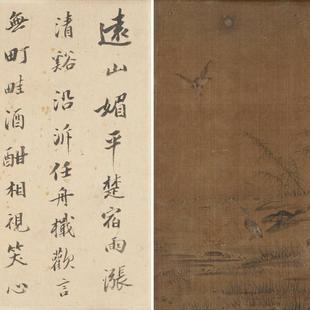 遠山媚平楚宿雨漲
清谿沿泝任舟檝歡言
無町畦酒酣相視笑心